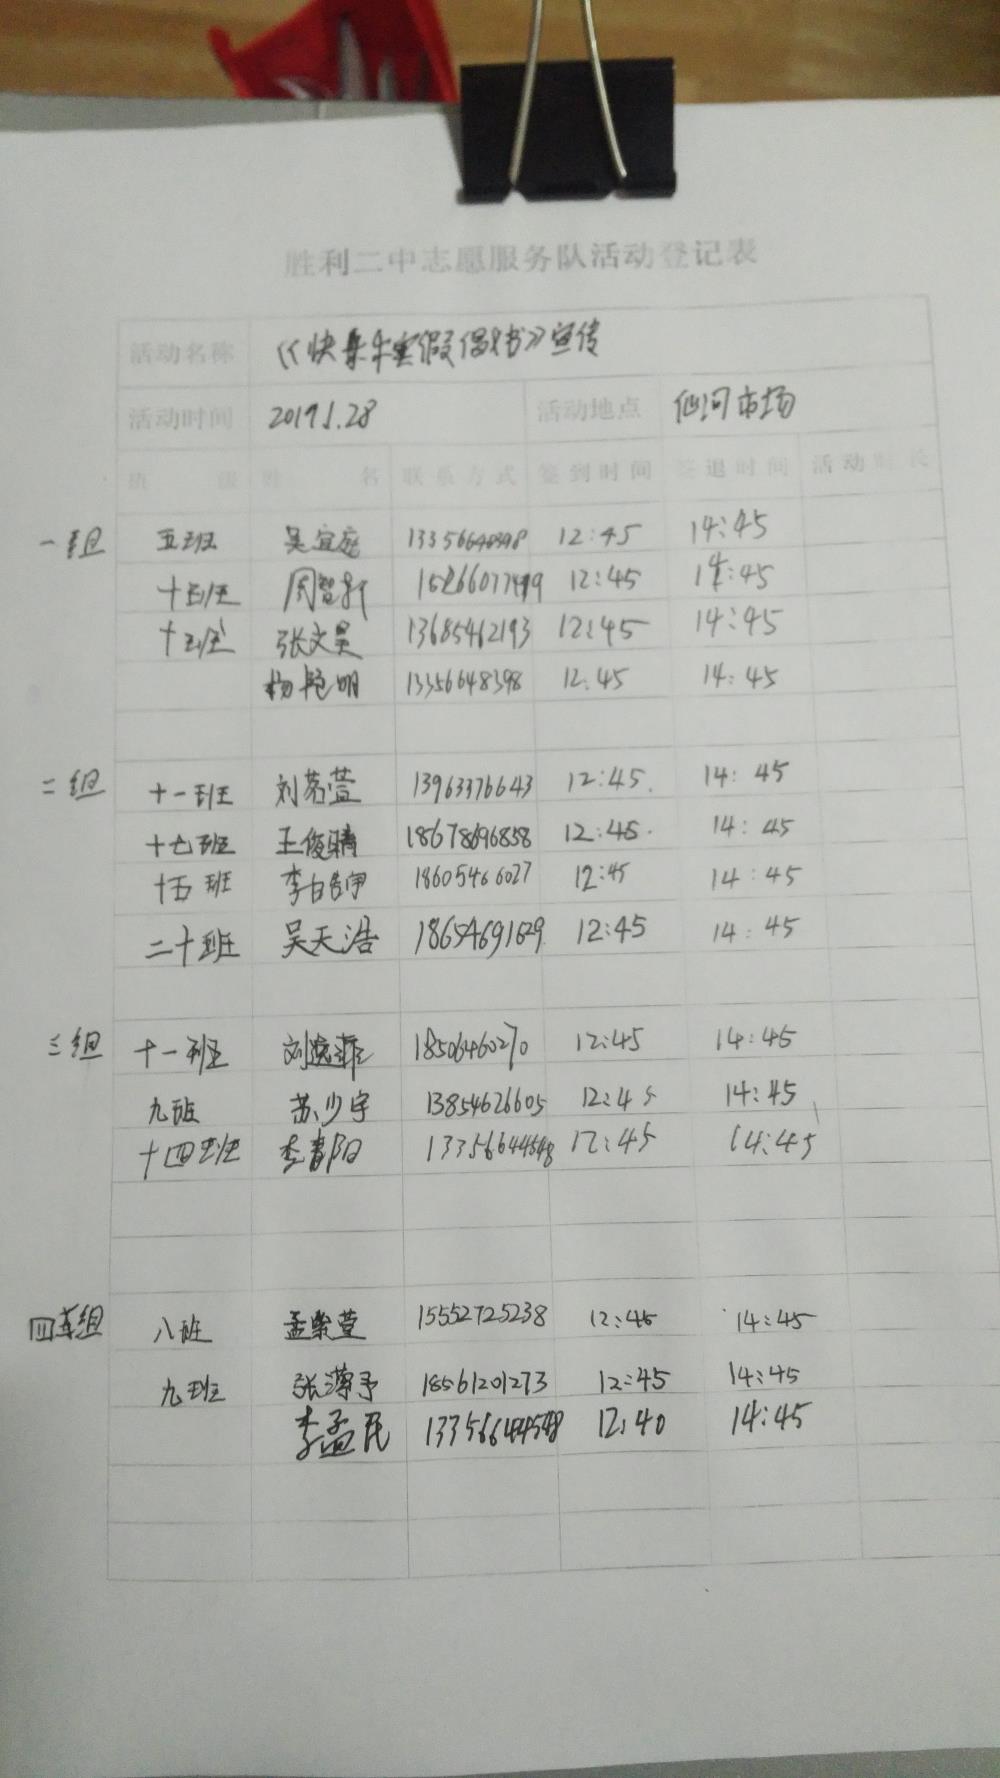 胜利二中志愿服务队活动登记表
活动名称 《快乐寒假倡议书》宣传
活动时间 2017.1.28 活动地点 仙河市场
班 级 姓 名 联系方式 签到时间 签退时间 活动时长
一组 五班 吴宜庭 12:45 14:45
十五班 周智轩 12:45 14:45
十五班 张文昊 13685462193 12:45 14:45
杨艳明 13356648398 12:45 14:45
二组 十一班 刘茗萱 13963376643 12:45 14:45
十七班 王俊晴 18678696858 12:45 14:45
十五班 18605466027 12:45 14:45
二十班 吴天浩 18654691629 12:45 14:45
三组 十一班 18506460270 12:45 14:45
九班 苏少宇 13854626605 12:45 14:45
十四班 李青阳 13356644548 12:45 14:45
四组 八班 孟紫萱 15552725238 12:45 14:45
九班 18561201273 12:45 14:45
李孟民 13356644548 12:40 14:45